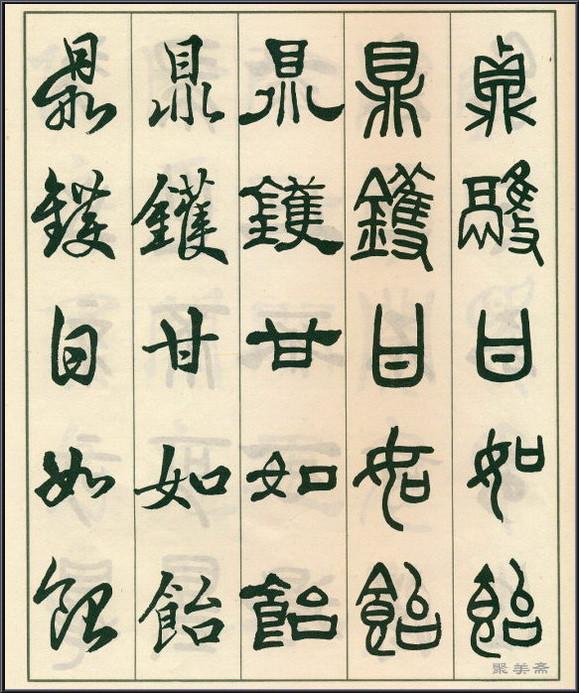 鼎鑊甘如飴
鼎鑊甘如飴
鼎鑊甘如飴
鼎鑊甘如飴
鼎鑊甘如飴
聚美斋